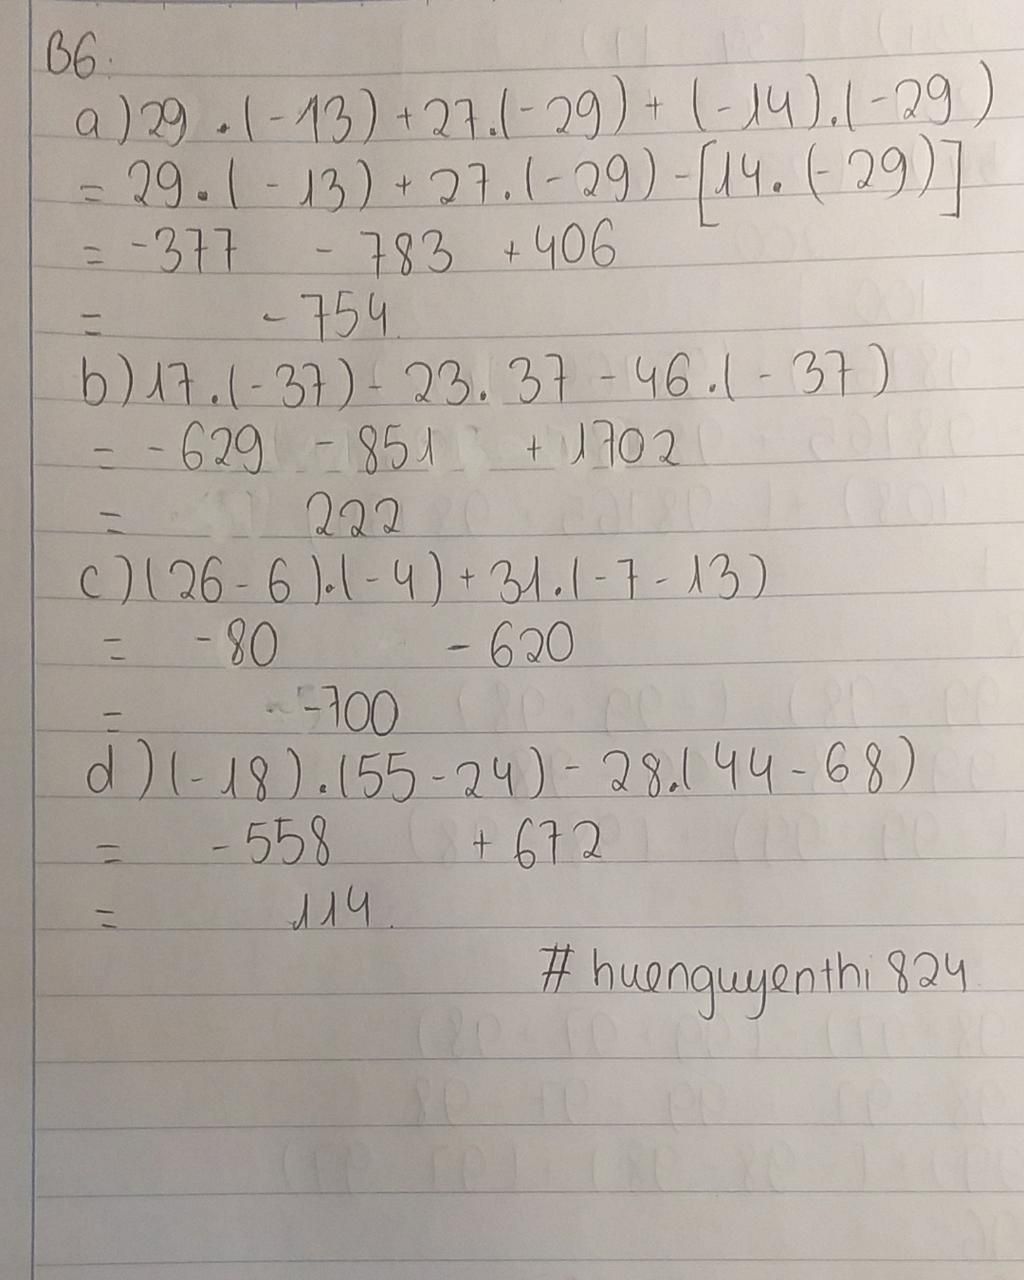 B6.
a) 29 . (-13) + 27.(-29) + (-14).(-29)
= 29.(-13) + 27.(-29) - [14.(-29)]
= -377 - 783 + 406
= - 754.
b) 17.(-37) - 23. 37 - 46.(-37)
= - 629 - 851 + 1702
= 222
c) (26 - 6).(-4) + 31.(-7 - 13)
= -80 - 620
= -700
d) (-18).(55 - 24) - 28.(44 - 68)
= -558 + 672
= 114.
# huenguyenthi 824